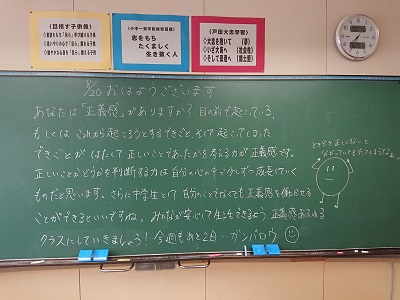 【目指す子供像】
【小中一貫学校教育目標】
志をもち
たくましく
生き抜く人
【戸田大志学習】
◇大志を抱いて (夢)
◇いざ大海へ (社会性)
◇そして故郷へ (郷土愛)
8/20 おはようございます
あなたは「正義感」がありますか？目の前で起こっている、
もしくはこれから起ころうとするできごと、そして起こってしまった
できごとがはたして正しいことであったかを考える力が正義感です。
正しいことかどうかを判断する力は自分の心の中で少しずつ成長していく
ものだと思います。さらに中学生として自分のことでなくても正義感を働かせる
ことができるといいですね。みんなが笑って生活できるよう正義感あふれる
クラスにしていきましょう！今週もあと2日…ガンバロウ